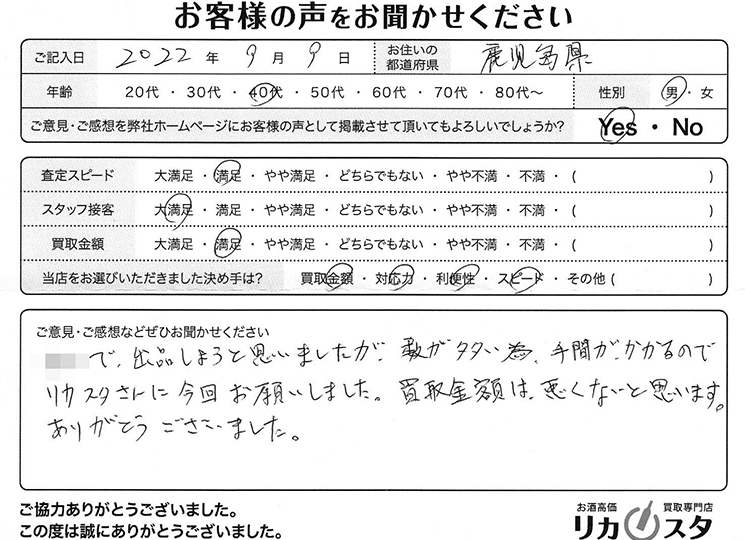 お客様の声をお聞かせください
ご記入日 2022 年 9 月 9 日 お住いの都道府県 鹿児島県
年齢 20代 ・ 30代 ・ 40代 ・ 50代 ・ 60代 ・ 70代 ・ 80代〜 性別 男 ・ 女
ご意見・ご感想を弊社ホームページにお客様の声として掲載させて頂いてもよろしいでしょうか? Yes ・ No
査定スピード 大満足 ・ 満足 ・ やや満足 ・ どちらでもない ・ やや不満 ・ 不満 ・ ( )
スタッフ接客 大満足 ・ 満足 ・ やや満足 ・ どちらでもない ・ やや不満 ・ 不満 ・ ( )
買取金額 大満足 ・ 満足 ・ やや満足 ・ どちらでもない ・ やや不満 ・ 不満 ・ ( )
当店をお選びいただきました決め手は? 買取金額 ・ 対応力 ・ 利便性 ・ スピード ・ その他 ( )
ご意見・ご感想などぜひお聞かせください
で、出品しようと思いましたが、数が多い為、手間が、かかるので
リカスタさんに今回お願いしました。買取金額は、悪くないと思います。
ありがとうございました。
ご協力ありがとうございました。
この度は誠にありがとうございました。
お酒高価 買取専門店
リカスタ